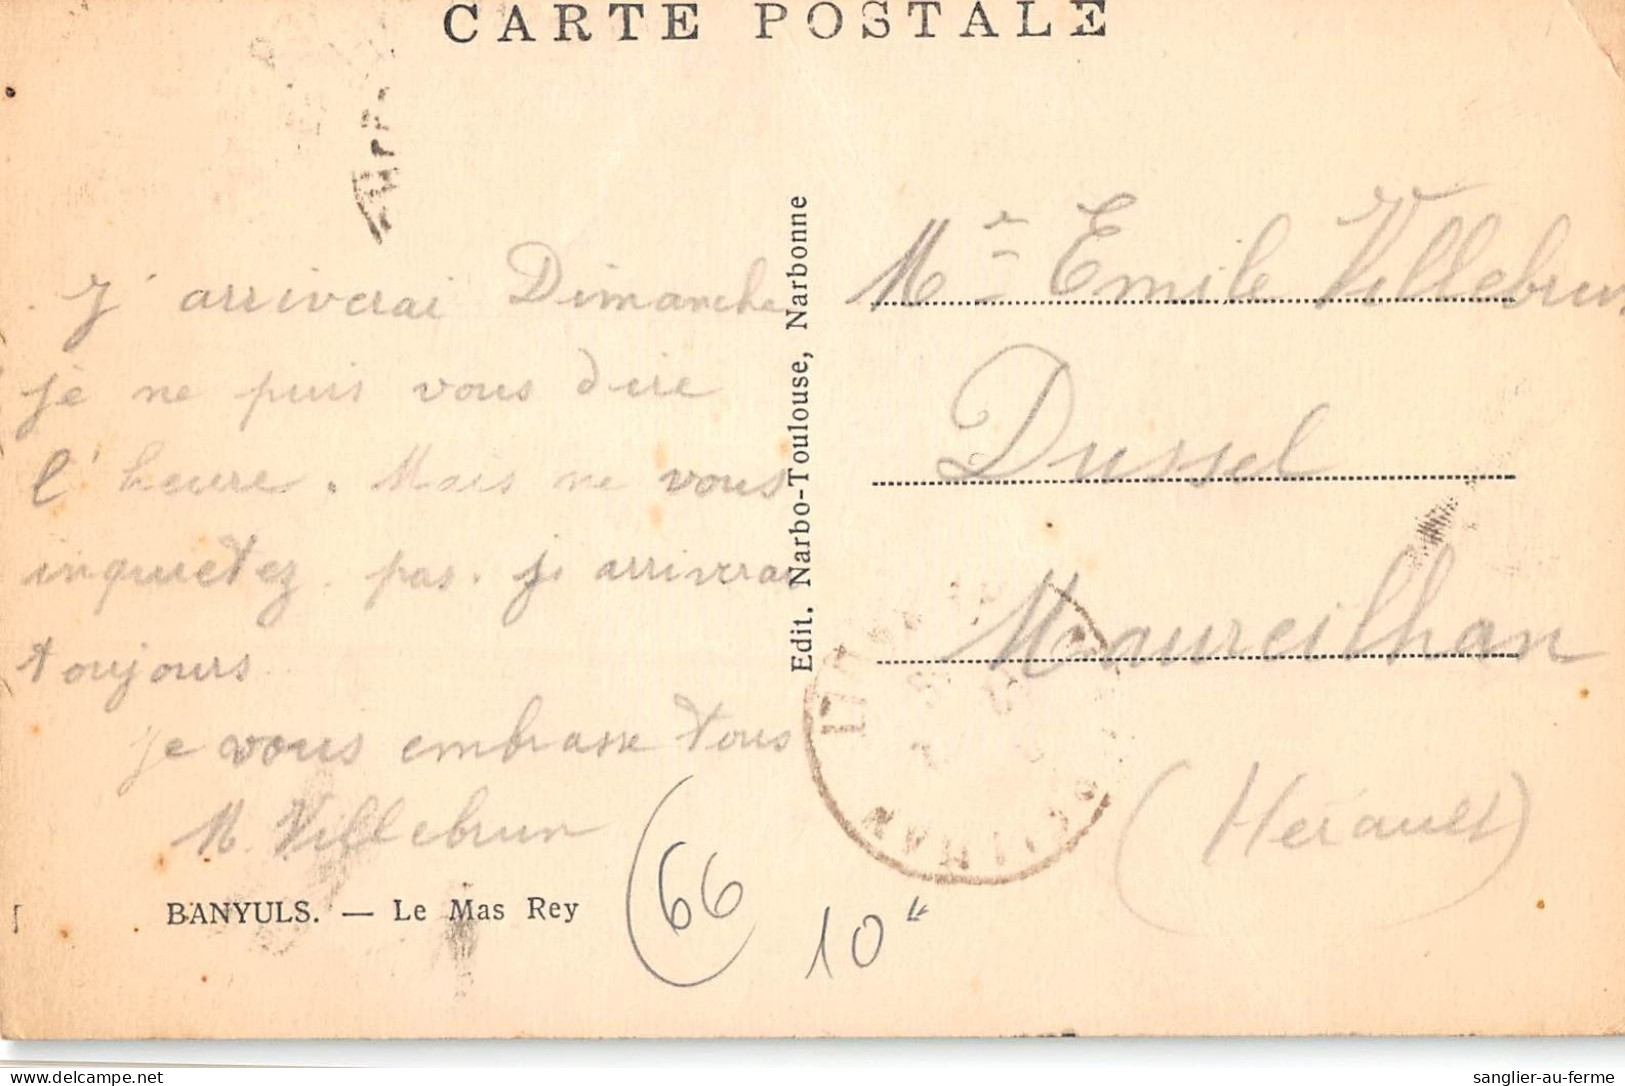 CARTE POSTALE
J'arriverai Dimanche
je ne puis vous dire
l'heure. Mais ne vous
inquietez pas. je arriverai
toujours
je vous embrasse tous
M. Villebrun
BANYULS. — Le Mas Rey
(66
10"
Edit. Narbo-Toulouse, Narbonne
Mr Emile Villebrun
Dussel
Maureilhan
(Hérault)
sanglier-au-ferme